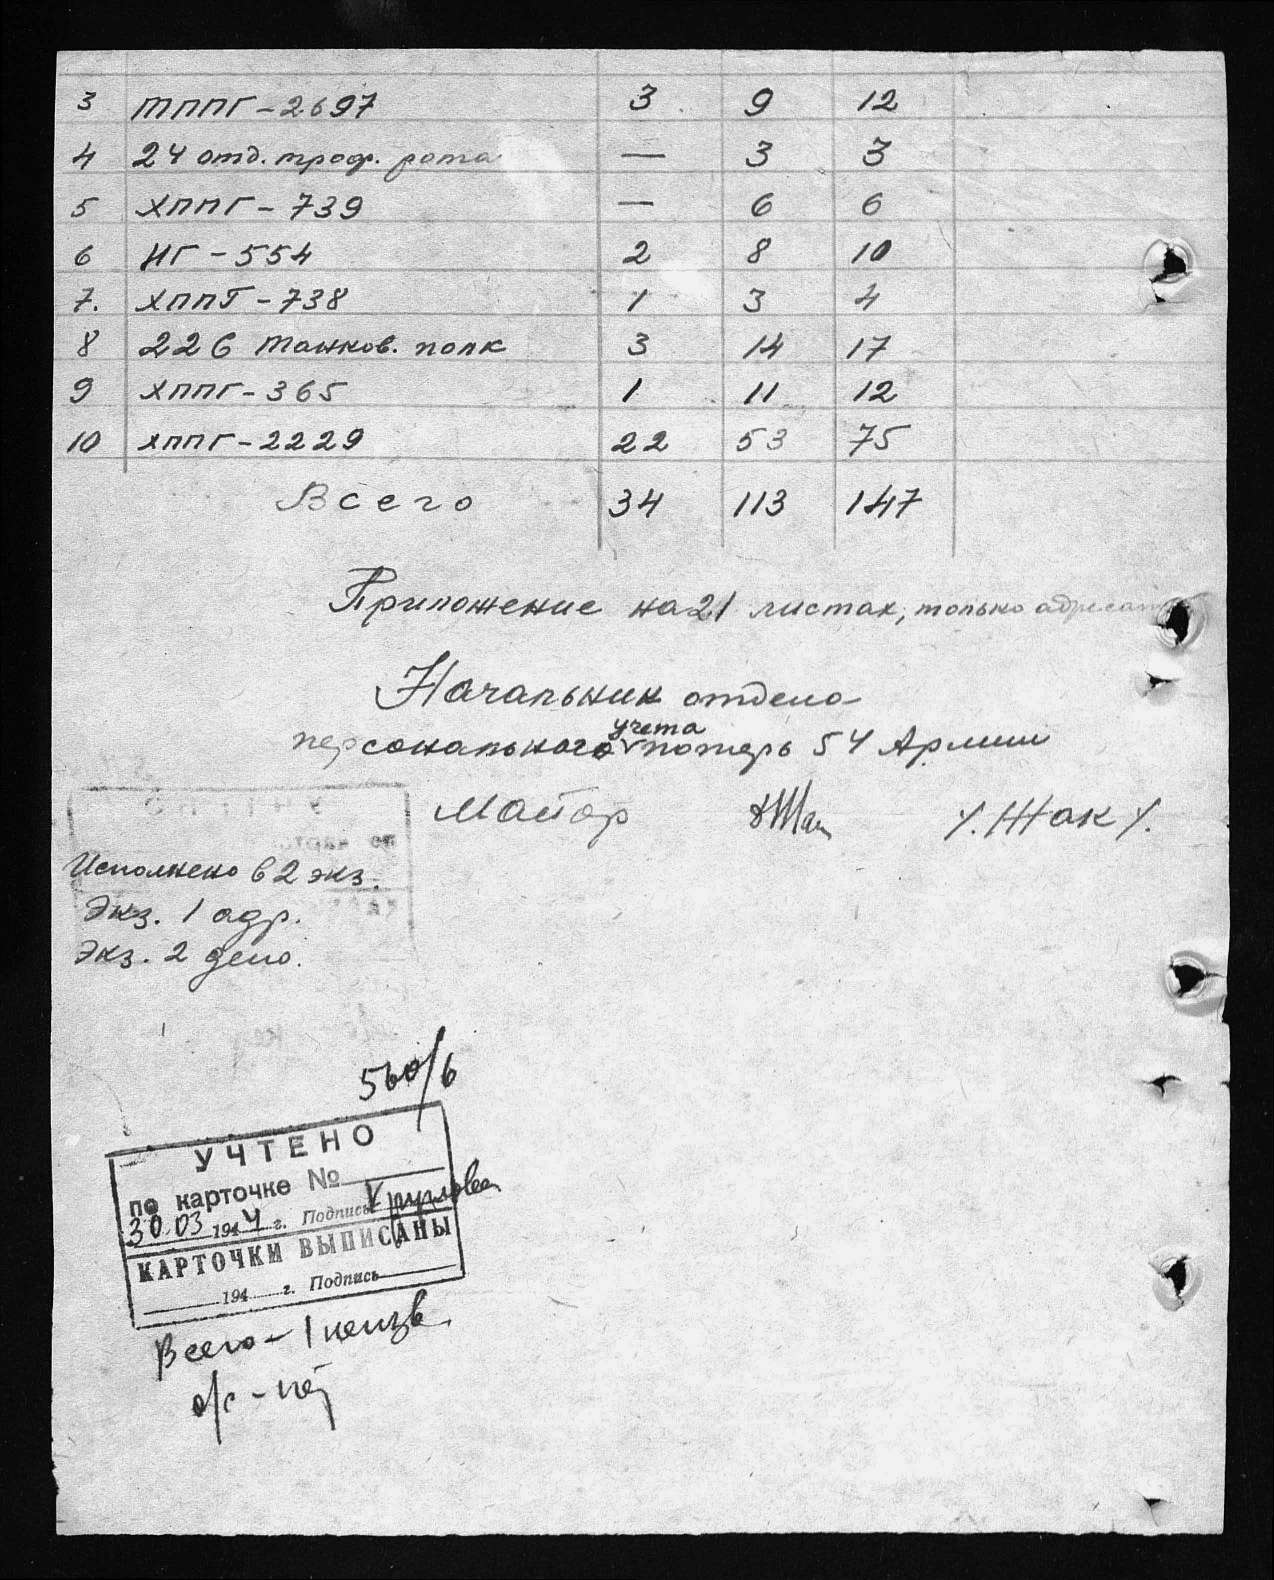 3 ТППГ-2697 3 9 12
4 24 отд. троф. рота — 3 3
5 ХППГ-739 — 6 6
6 ИГ-554 2 8 10
7. ХППГ-738 1 3 4
8 226 танков. полк 3 14 17
9 ХППГ-365 1 11 12
10 ХППГ-2229 22 53 75
Всего 34 113 147
Приложение на 21 листах, только адресату
Начальник отдела
персонального учета потерь 54 Армии
Майор /. Жак /.
Исполнено в 2 экз.
Экз. 1 адр.
Экз. 2 дело.
560/6
УЧТЕНО
по карточке №
30.03 1944 г. Подпись Круглова
КАРТОЧКИ ВЫПИСАНЫ
194 г. Подпись
Всего - 1 неизв.